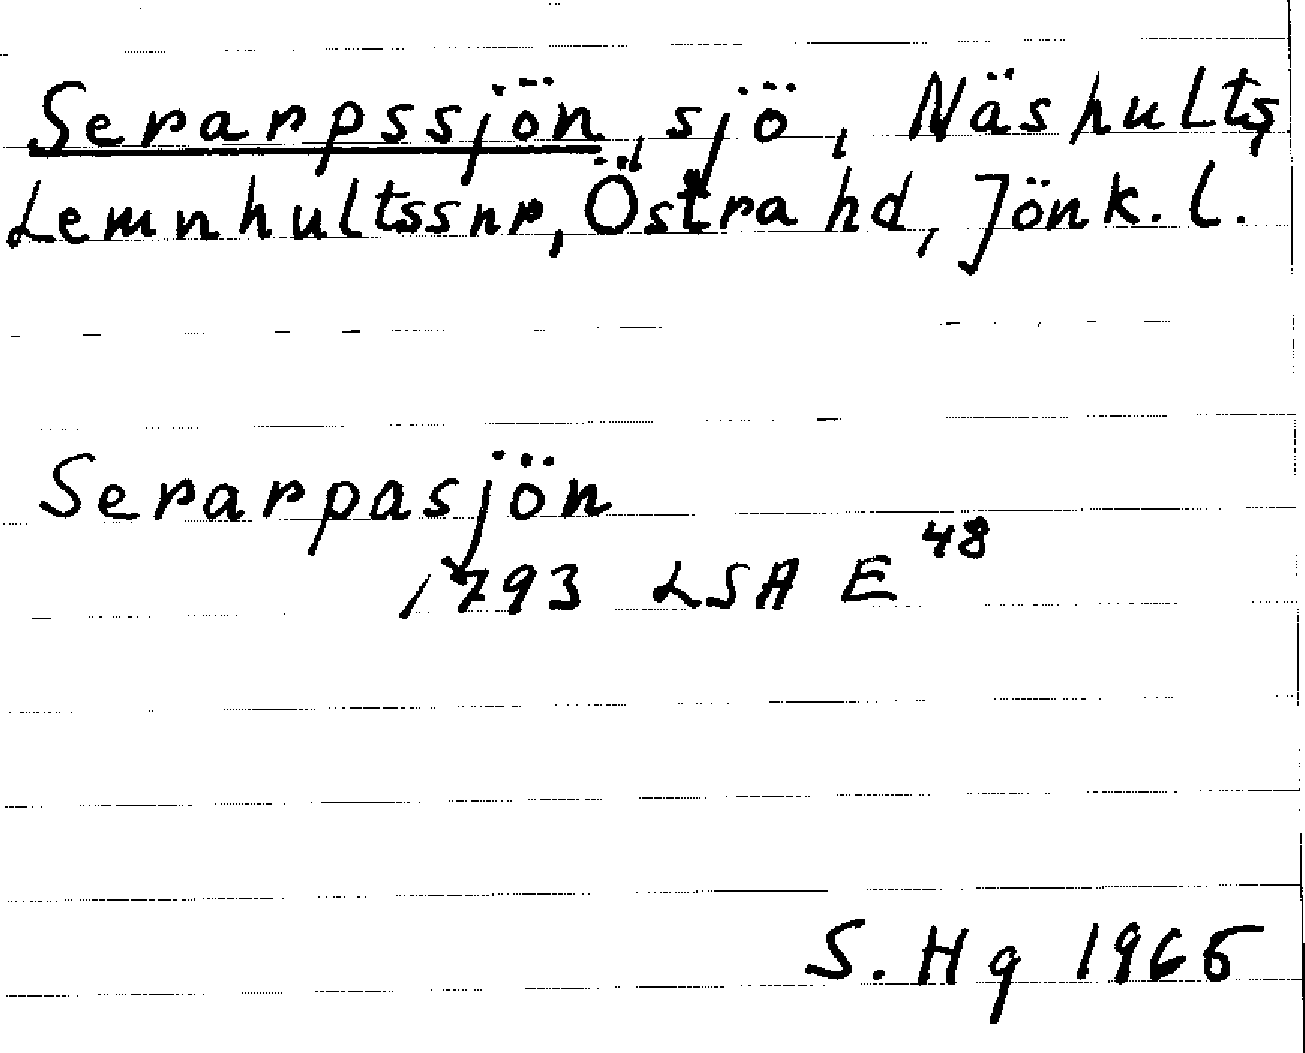 Serarpssjön, sjö, Näshults
Lemnhultssnr, Östra hd, Jönk. l.
Serarpasjön
1793 LSA E 48
S. Hg 1965